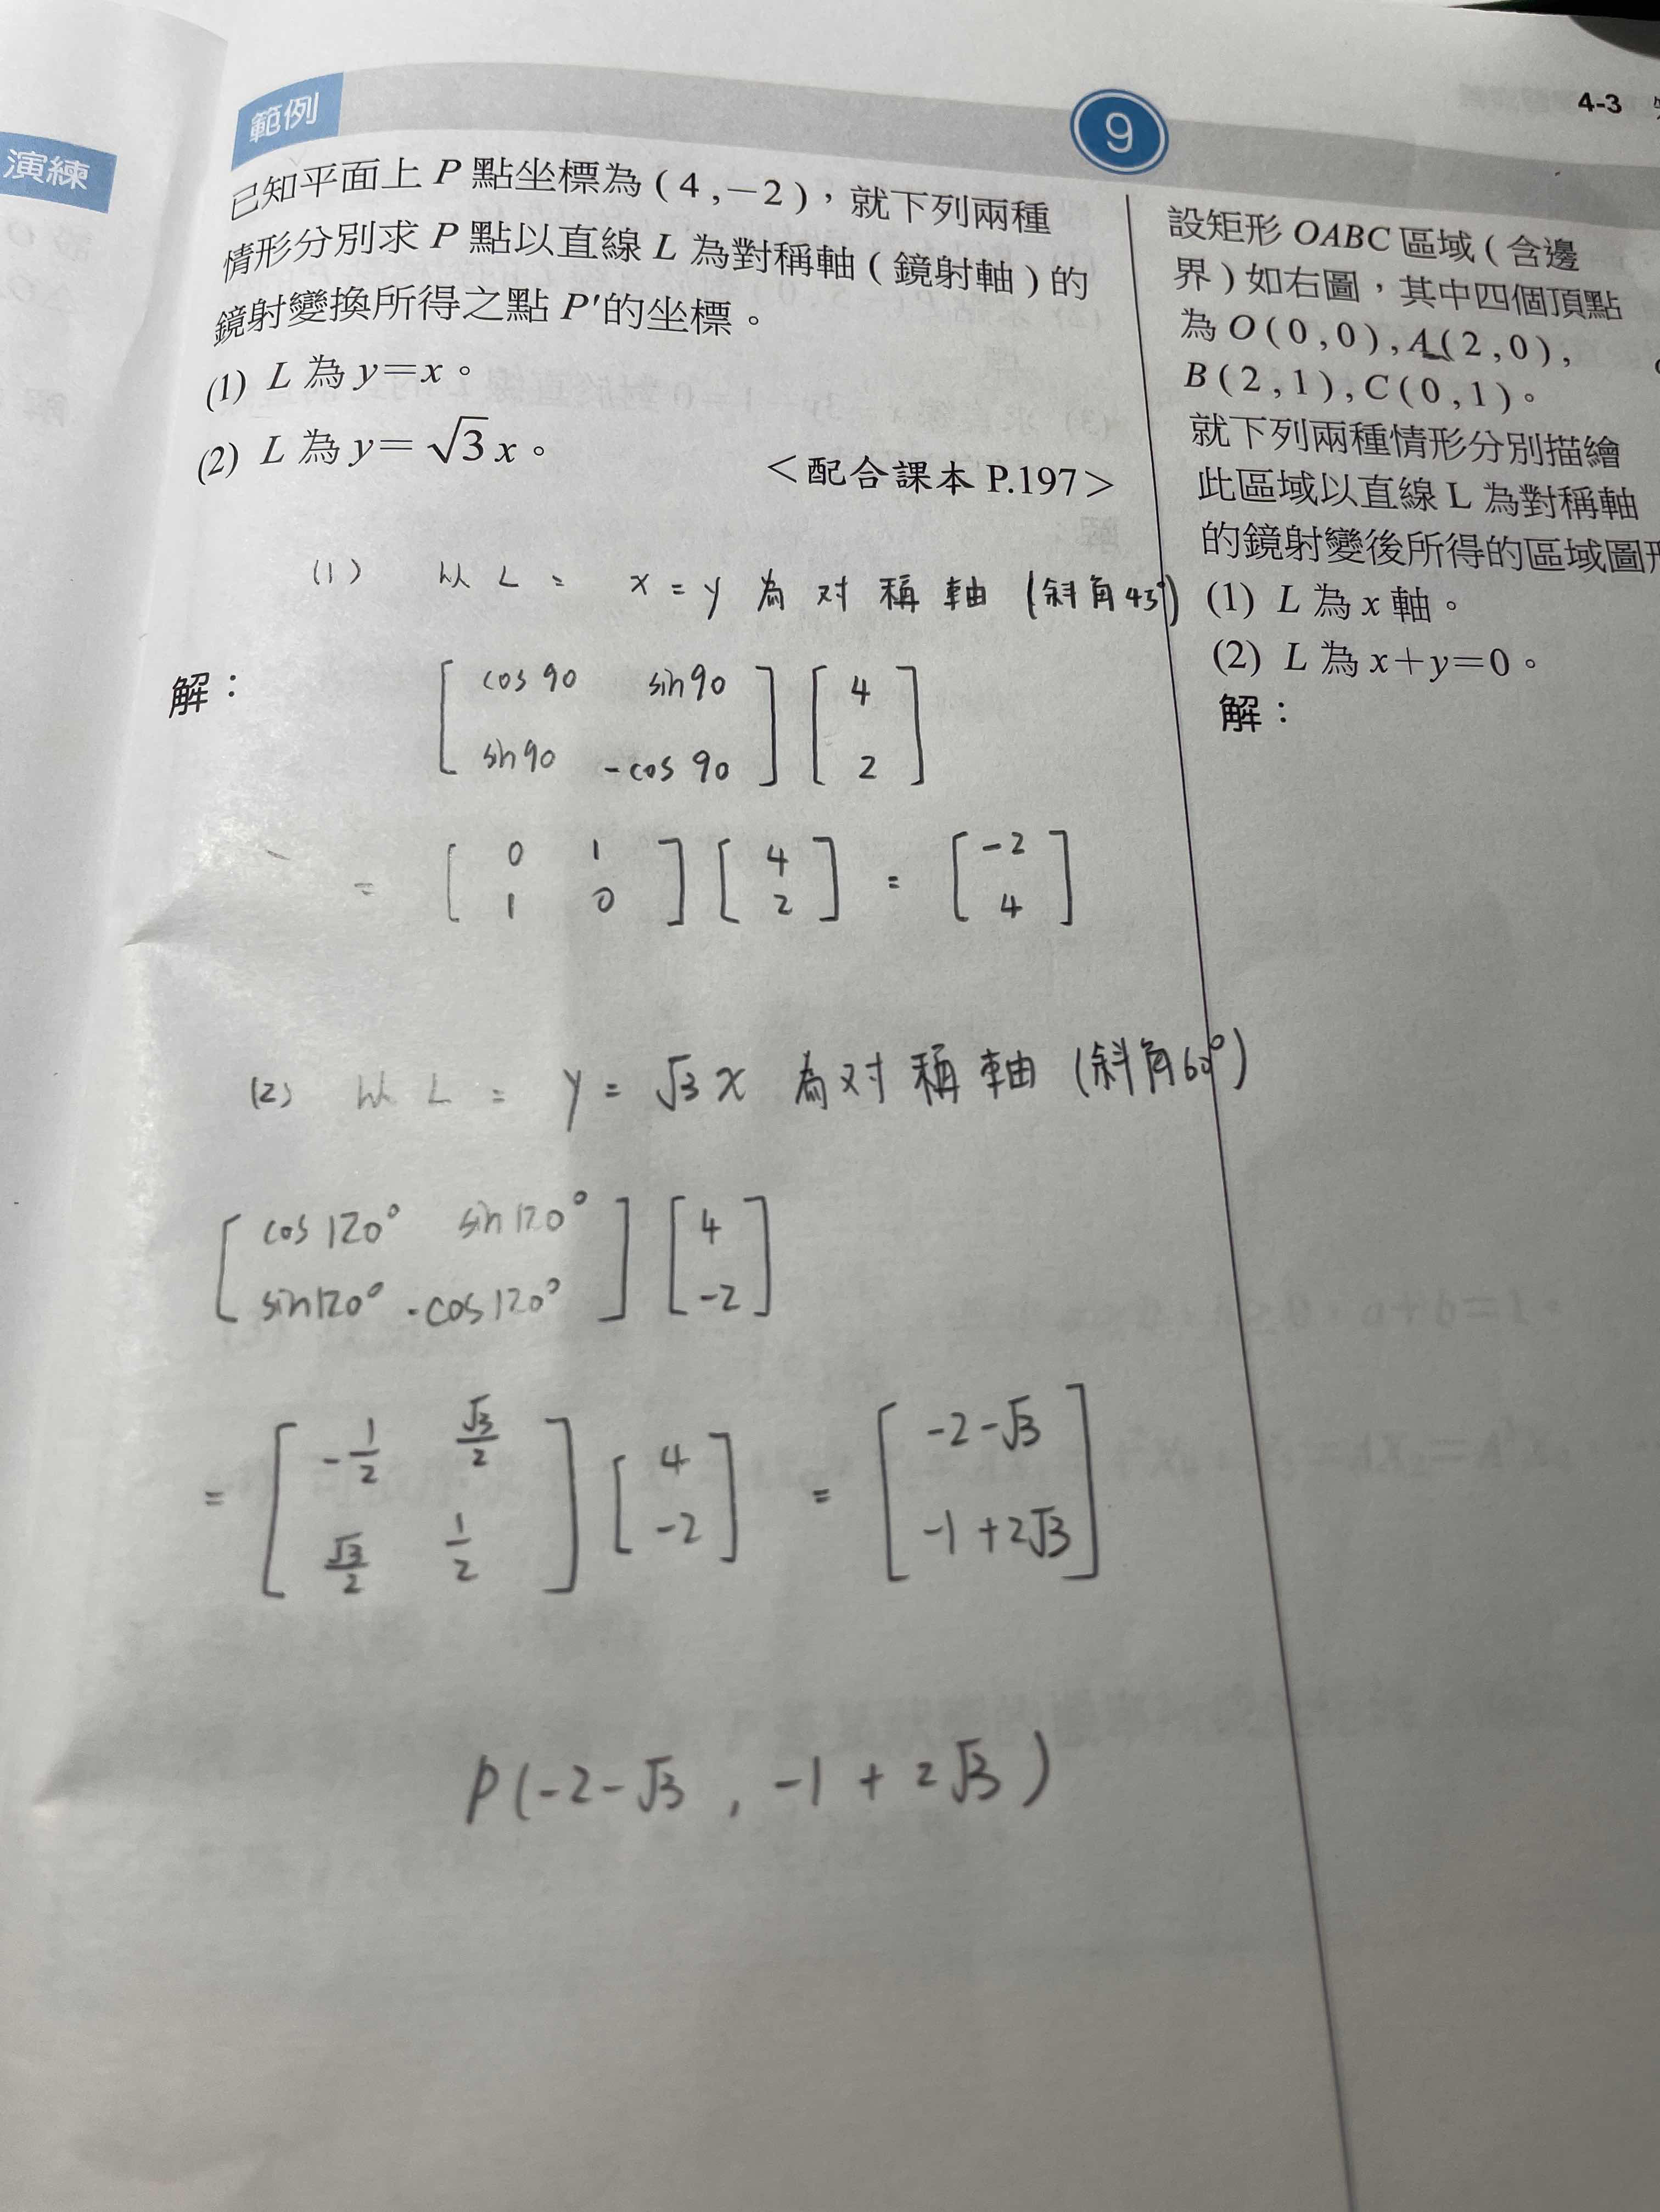 4-3
演練
範例
9
已知平面上 P 點坐標為 ( 4 , −2 ) , 就下列兩種
情形分別求 P 點以直線 L 為對稱軸 ( 鏡射軸 ) 的
鏡射變換所得之點 P′的坐標。
(1) L 為 y=x。
(2) L 為 y= √3 x。
<配合課本 P.197>
(1) 以 L = x = y 為对稱軸 (斜角45°)
解:
[ cos 90 sin 90 ] [ 4 ]
[ sin 90 -cos 90 ] [ 2 ]
= [ 0 1 ] [ 4 ] = [ -2 ]
[ 1 0 ] [ 2 ] [ 4 ]
(2) 以 L = y = √3 x 為对稱軸 (斜角60°)
[ cos 120° sin 120° ] [ 4 ]
[ sin 120° -cos 120° ] [ -2 ]
= [ -1/2 √3/2 ] [ 4 ] = [ -2-√3 ]
[ √3/2 1/2 ] [ -2 ] [ -1+2√3 ]
P(-2-√3 , -1 + 2√3 )
設矩形 OABC 區域 ( 含邊
界 ) 如右圖,其中四個頂點
為 O ( 0 , 0 ) , A ( 2 , 0 ) ,
B ( 2 , 1 ) , C ( 0 , 1 )。
就下列兩種情形分別描繪
此區域以直線 L 為對稱軸
的鏡射變後所得的區域圖形
(1) L 為 x 軸。
(2) L 為 x+y=0。
解: